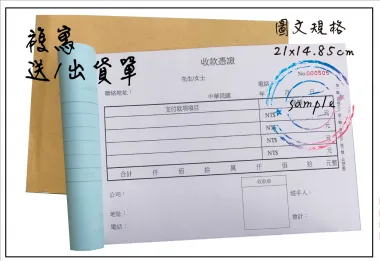 複寫
送/出貨單
圖文規格
21x14.85cm
收款憑證
先生/女士
電話：
No.000505
聯絡地址：
中華民國
年
月
日
sample
支付款項項目
NT$
元
NT$
元
NT$
元
NT$
元
合計
仟
佰
拾
萬
仟
佰
拾
元整
公司：
地址：
電話：
經手人：
會計：